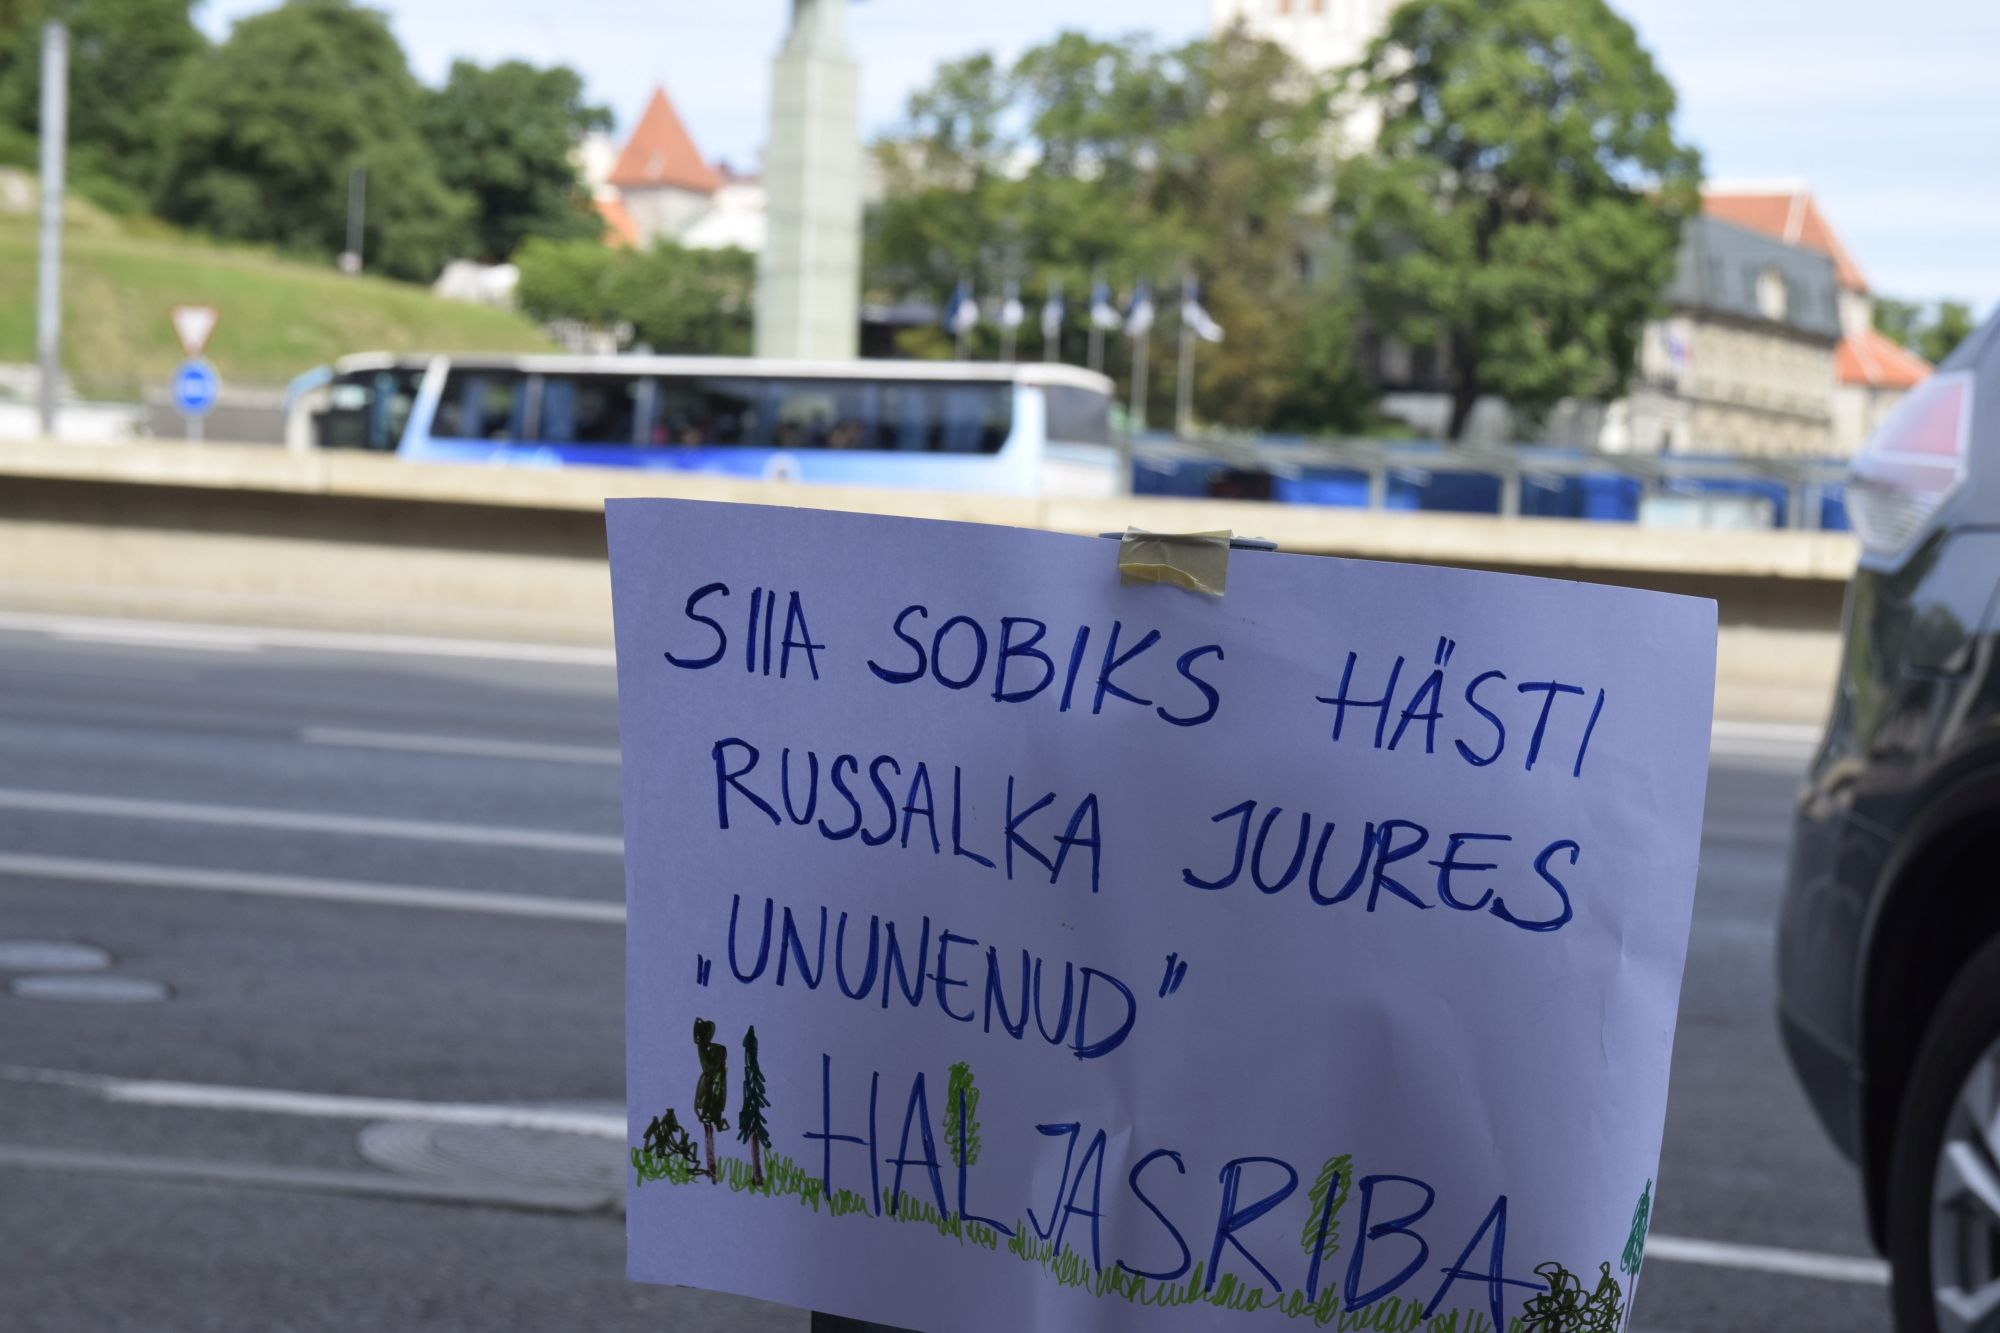 SIIA SOBIKS HÄSTI
RUSSALKA JUURES
„UNUNENUD”
HALJASRIBA